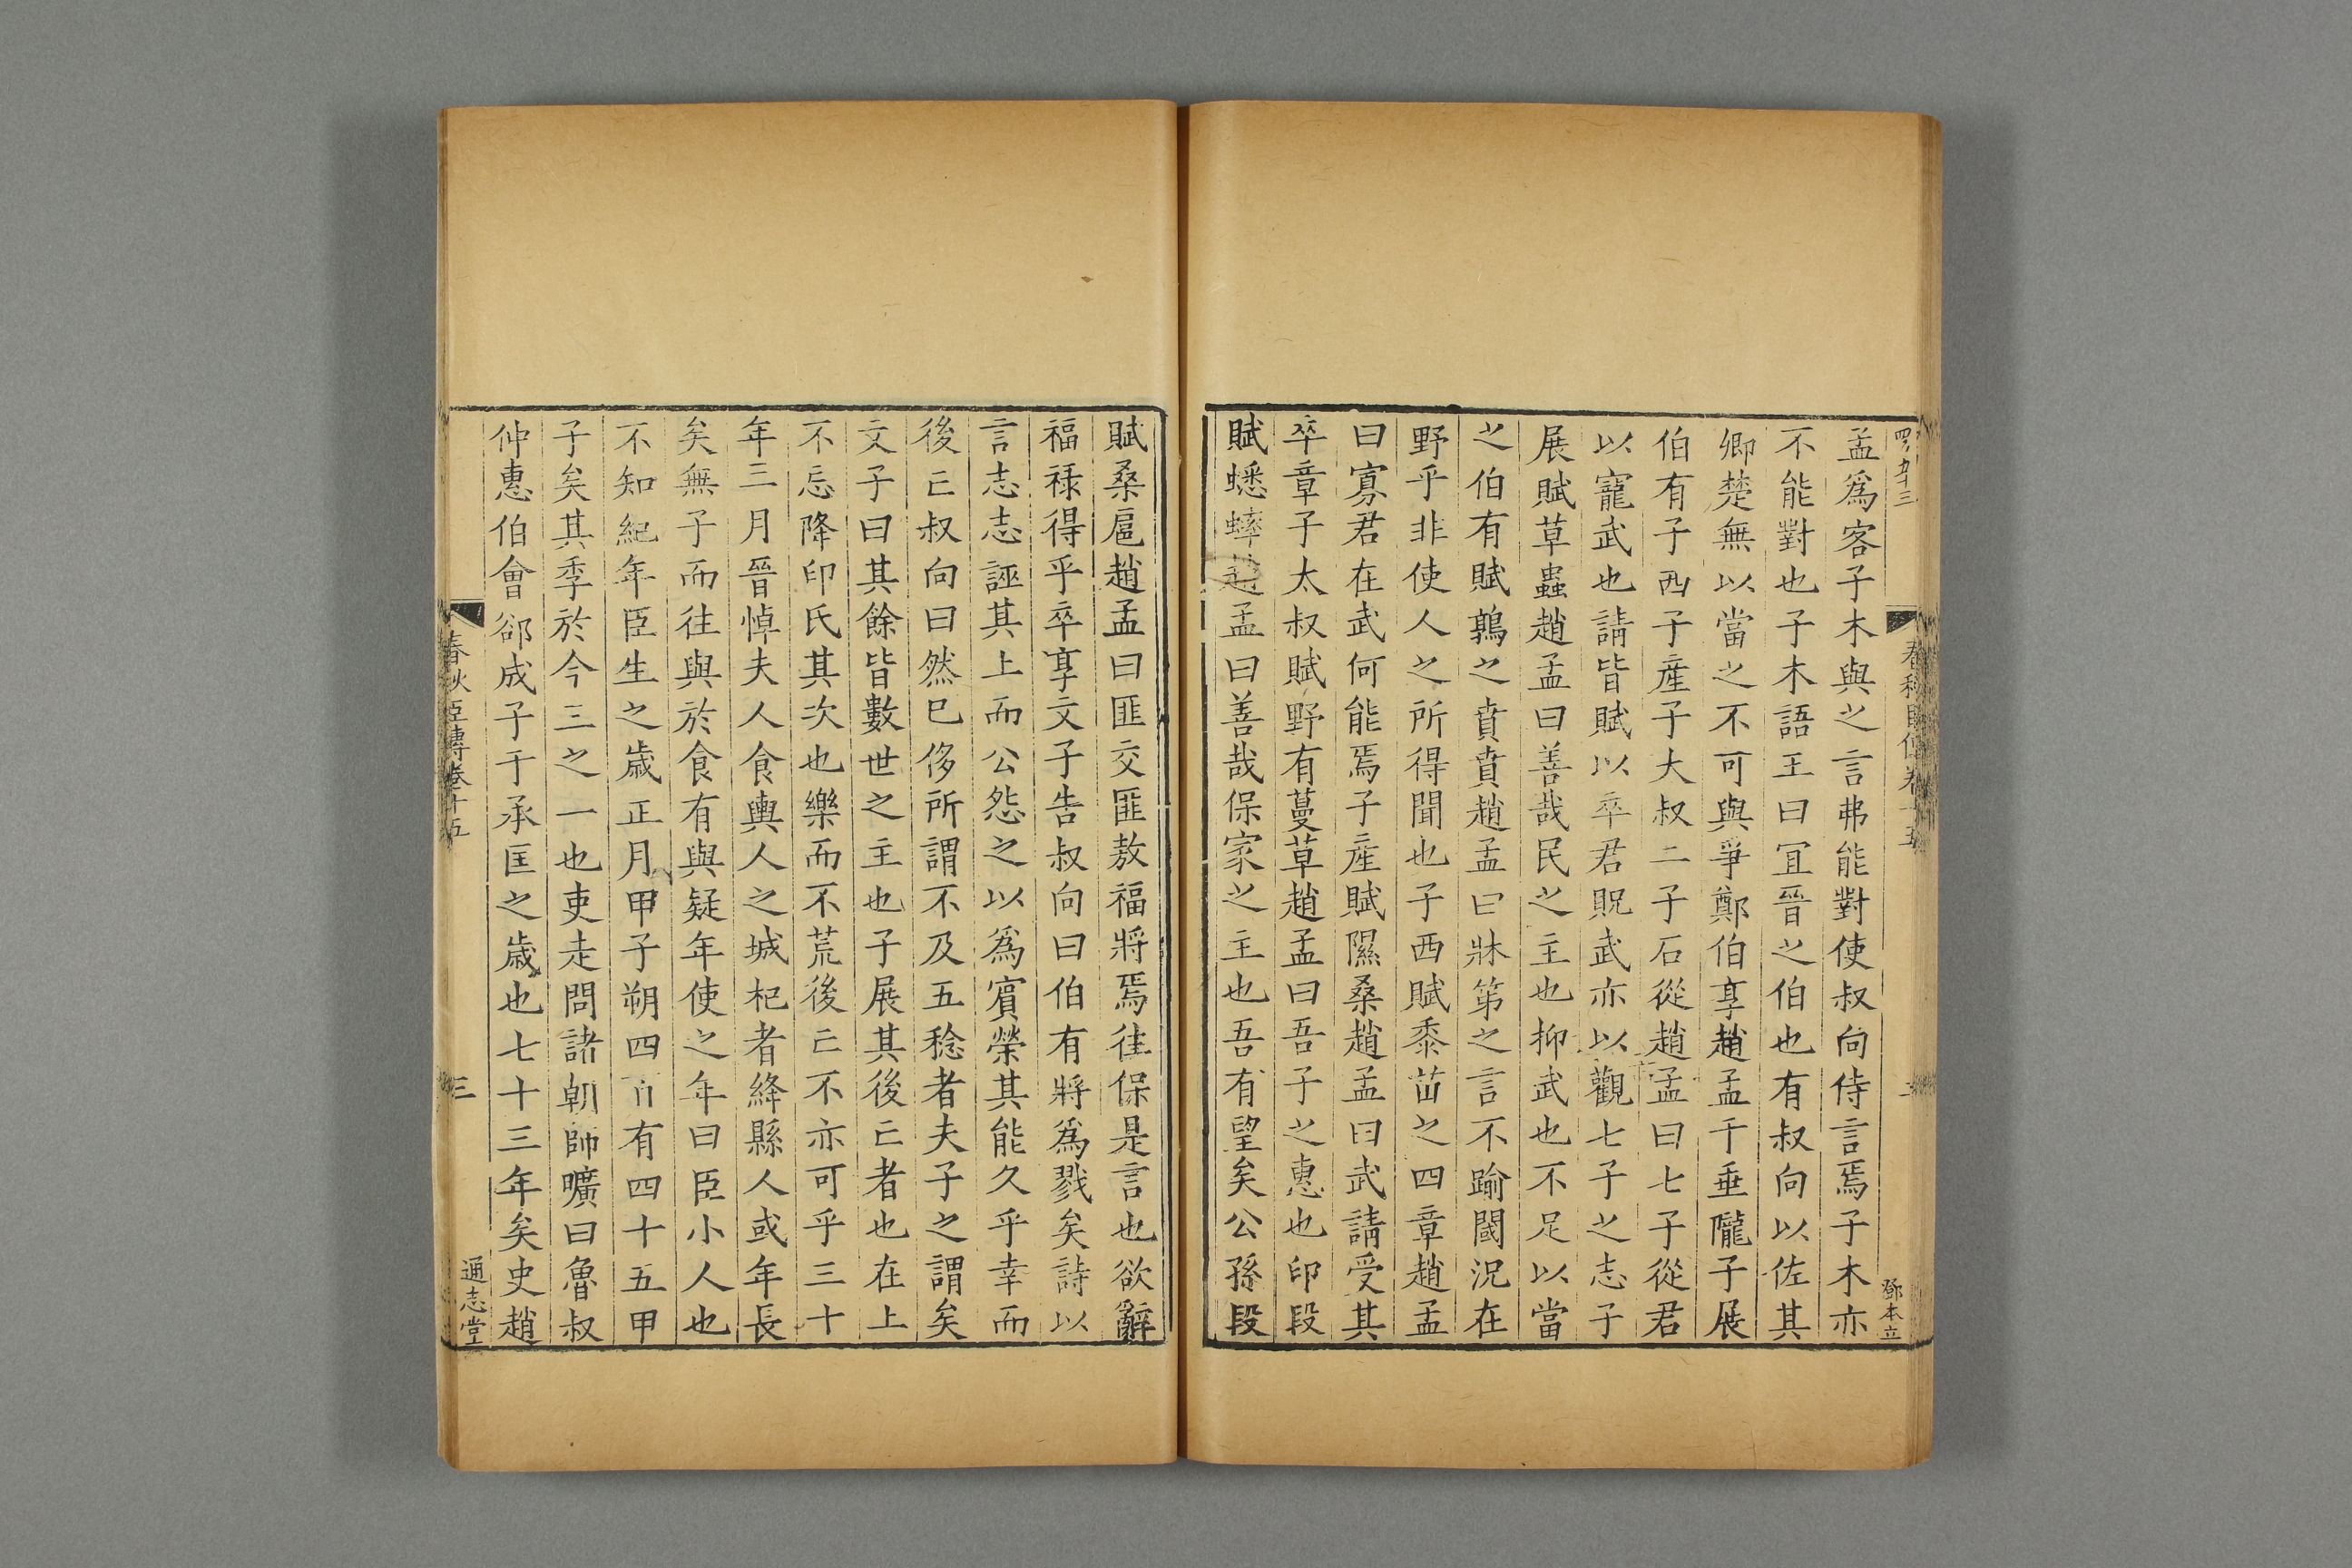 四百九十三
春秋臣傳卷十五
鄧本立
孟爲客子木與之言弗能對使叔向侍言焉子木亦
不能對也子木語王曰宜晉之伯也有叔向以佐其
卿楚無以當之不可與爭鄭伯享趙孟于垂隴子展
伯有子西子産子大叔二子石從趙孟曰七子從君
以寵武也請皆賦以卒君貺武亦以觀七子之志子
展賦草蟲趙孟曰善哉民之主也抑武也不足以當
之伯有賦鶉之賁賁趙孟曰牀第之言不踰閾況在
野乎非使人之所得聞也子西賦黍苗之四章趙孟
曰寡君在武何能焉子産賦隰桑趙孟曰武請受其
卒章子太叔賦野有蔓草趙孟曰吾子之惠也印段
賦蟋蟀趙孟曰善哉保家之主也吾有望矣公孫段
賦桑扈趙孟曰匪交匪敖福將焉往保是言也欲辭
福祿得乎卒享文子告叔向曰伯有將爲戮矣詩以
言志志誣其上而公怨之以爲賓榮其能久乎幸而
後亡叔向曰然已侈所謂不及五稔者夫子之謂矣
文子曰其餘皆數世之主也子展其後亡者也在上
不忘降印氏其次也樂而不荒後亡不亦可乎三十
年三月晉悼夫人食輿人之城杞者絳縣人或年長
矣無子而往與於食有與疑年使之年曰臣小人也
不知紀年臣生之歲正月甲子朔四百有四十五甲
子矣其季於今三之一也吏走問諸朝師曠曰魯叔
仲惠伯會郤成子于承匡之歲也七十三年矣史趙
春秋臣傳卷十五
三
通志堂